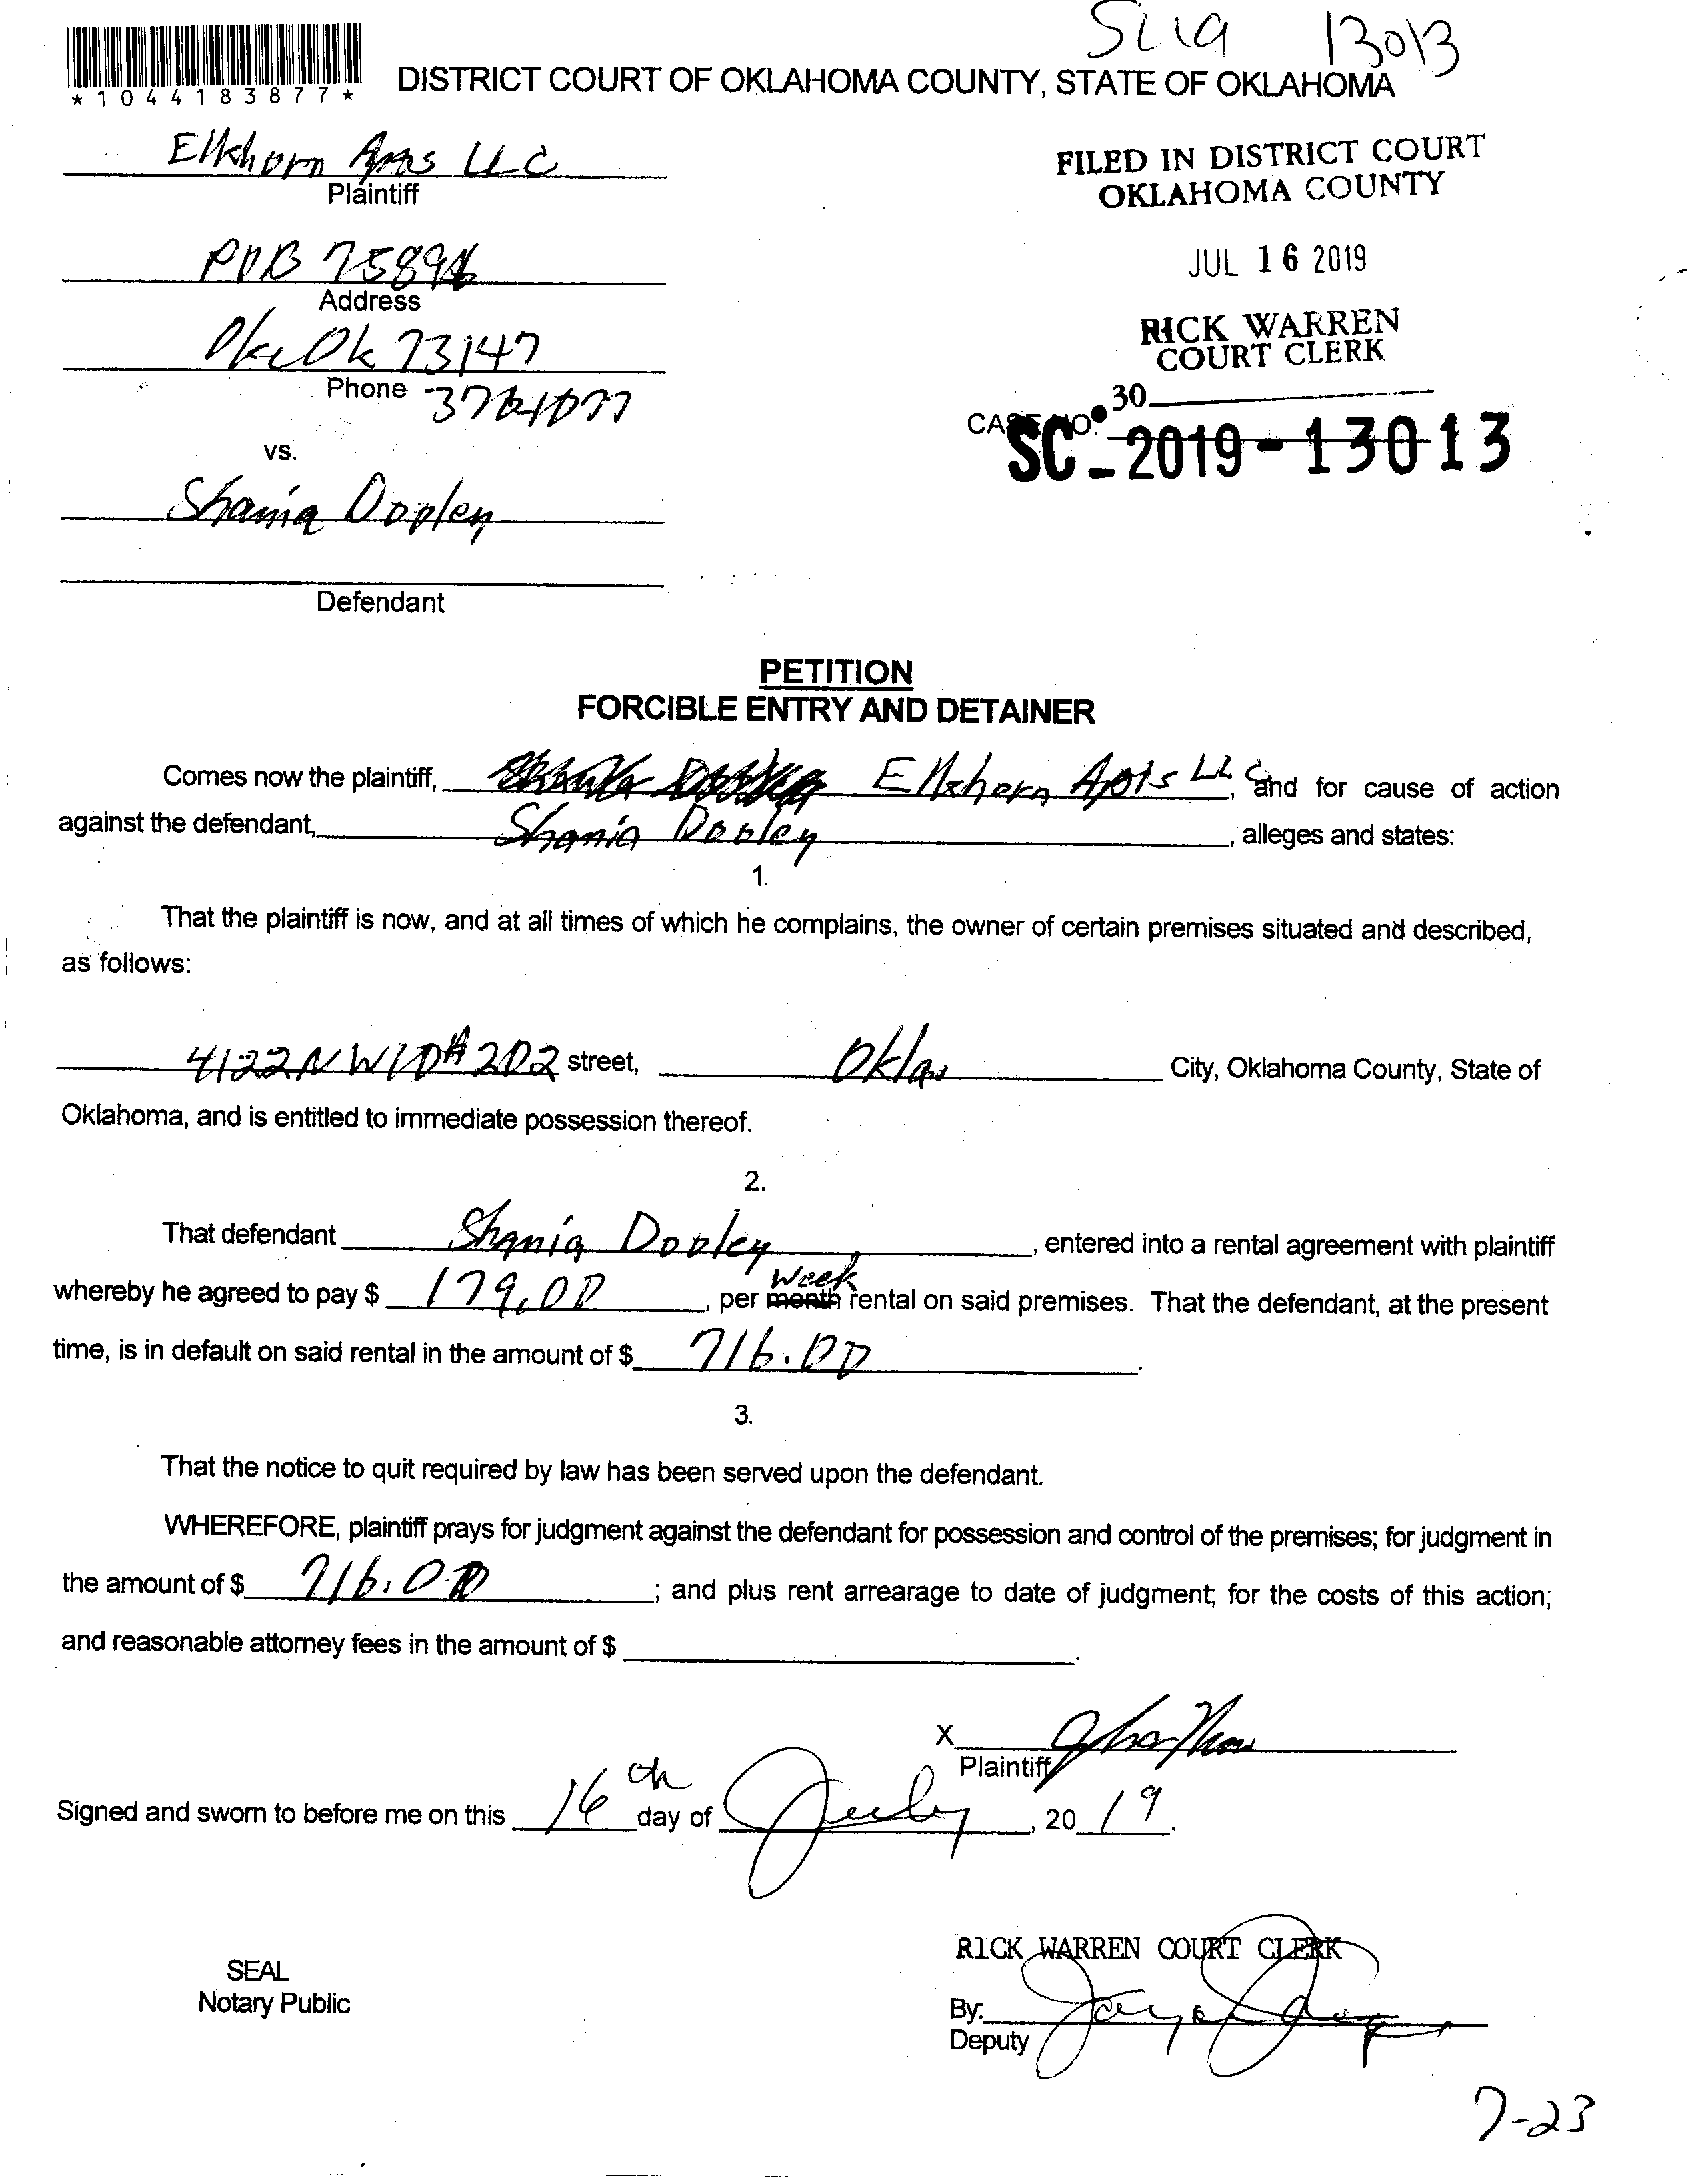 SC 19 13013
*1044183877*
DISTRICT COURT OF OKLAHOMA COUNTY, STATE OF OKLAHOMA
Elkhorn Apts LLC
Plaintiff
FILED IN DISTRICT COURT
OKLAHOMA COUNTY
POB 75894
Address
JUL 16 2019
Okc Ok 73147
Phone
RICK WARREN
COURT CLERK
30
CASE NO.
SC - 2019 - 13013
vs.
Shania Dooley
Defendant
PETITION
FORCIBLE ENTRY AND DETAINER
Comes now the plaintiff, Elkhorn Apts LLC, and for cause of action
against the defendant, Shania Dooley, alleges and states:
1.
That the plaintiff is now, and at all times of which he complains, the owner of certain premises situated and described,
as follows:
4122 NW 10 # 202 street, Okla City, Oklahoma County, State of
Oklahoma, and is entitled to immediate possession thereof.
2.
That defendant Shania Dooley, entered into a rental agreement with plaintiff
whereby he agreed to pay $ 179.00, per month Week rental on said premises. That the defendant, at the present
time, is in default on said rental in the amount of $ 716.00.
3.
That the notice to quit required by law has been served upon the defendant.
WHEREFORE, plaintiff prays for judgment against the defendant for possession and control of the premises; for judgment in
the amount of $ 716.00; and plus rent arrearage to date of judgment; for the costs of this action;
and reasonable attorney fees in the amount of $.
X
Plaintiff
Signed and sworn to before me on this 16th day of July, 2019.
RICK WARREN COURT CLERK
SEAL
Notary Public
By:
Deputy
7-23